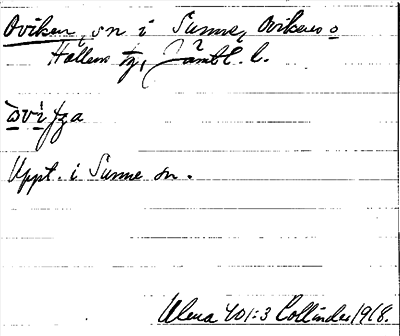 Oviken, sn i Sunne, Ovikens o
Hallens tg, Jämtl. l.
òvìɲa
Uppt. i Sunne sn.
Ulma 401:3 Collinder 1918.